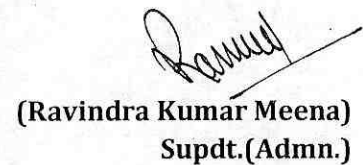 (Ravindra Kumar Meena)
Supdt.(Admn.)